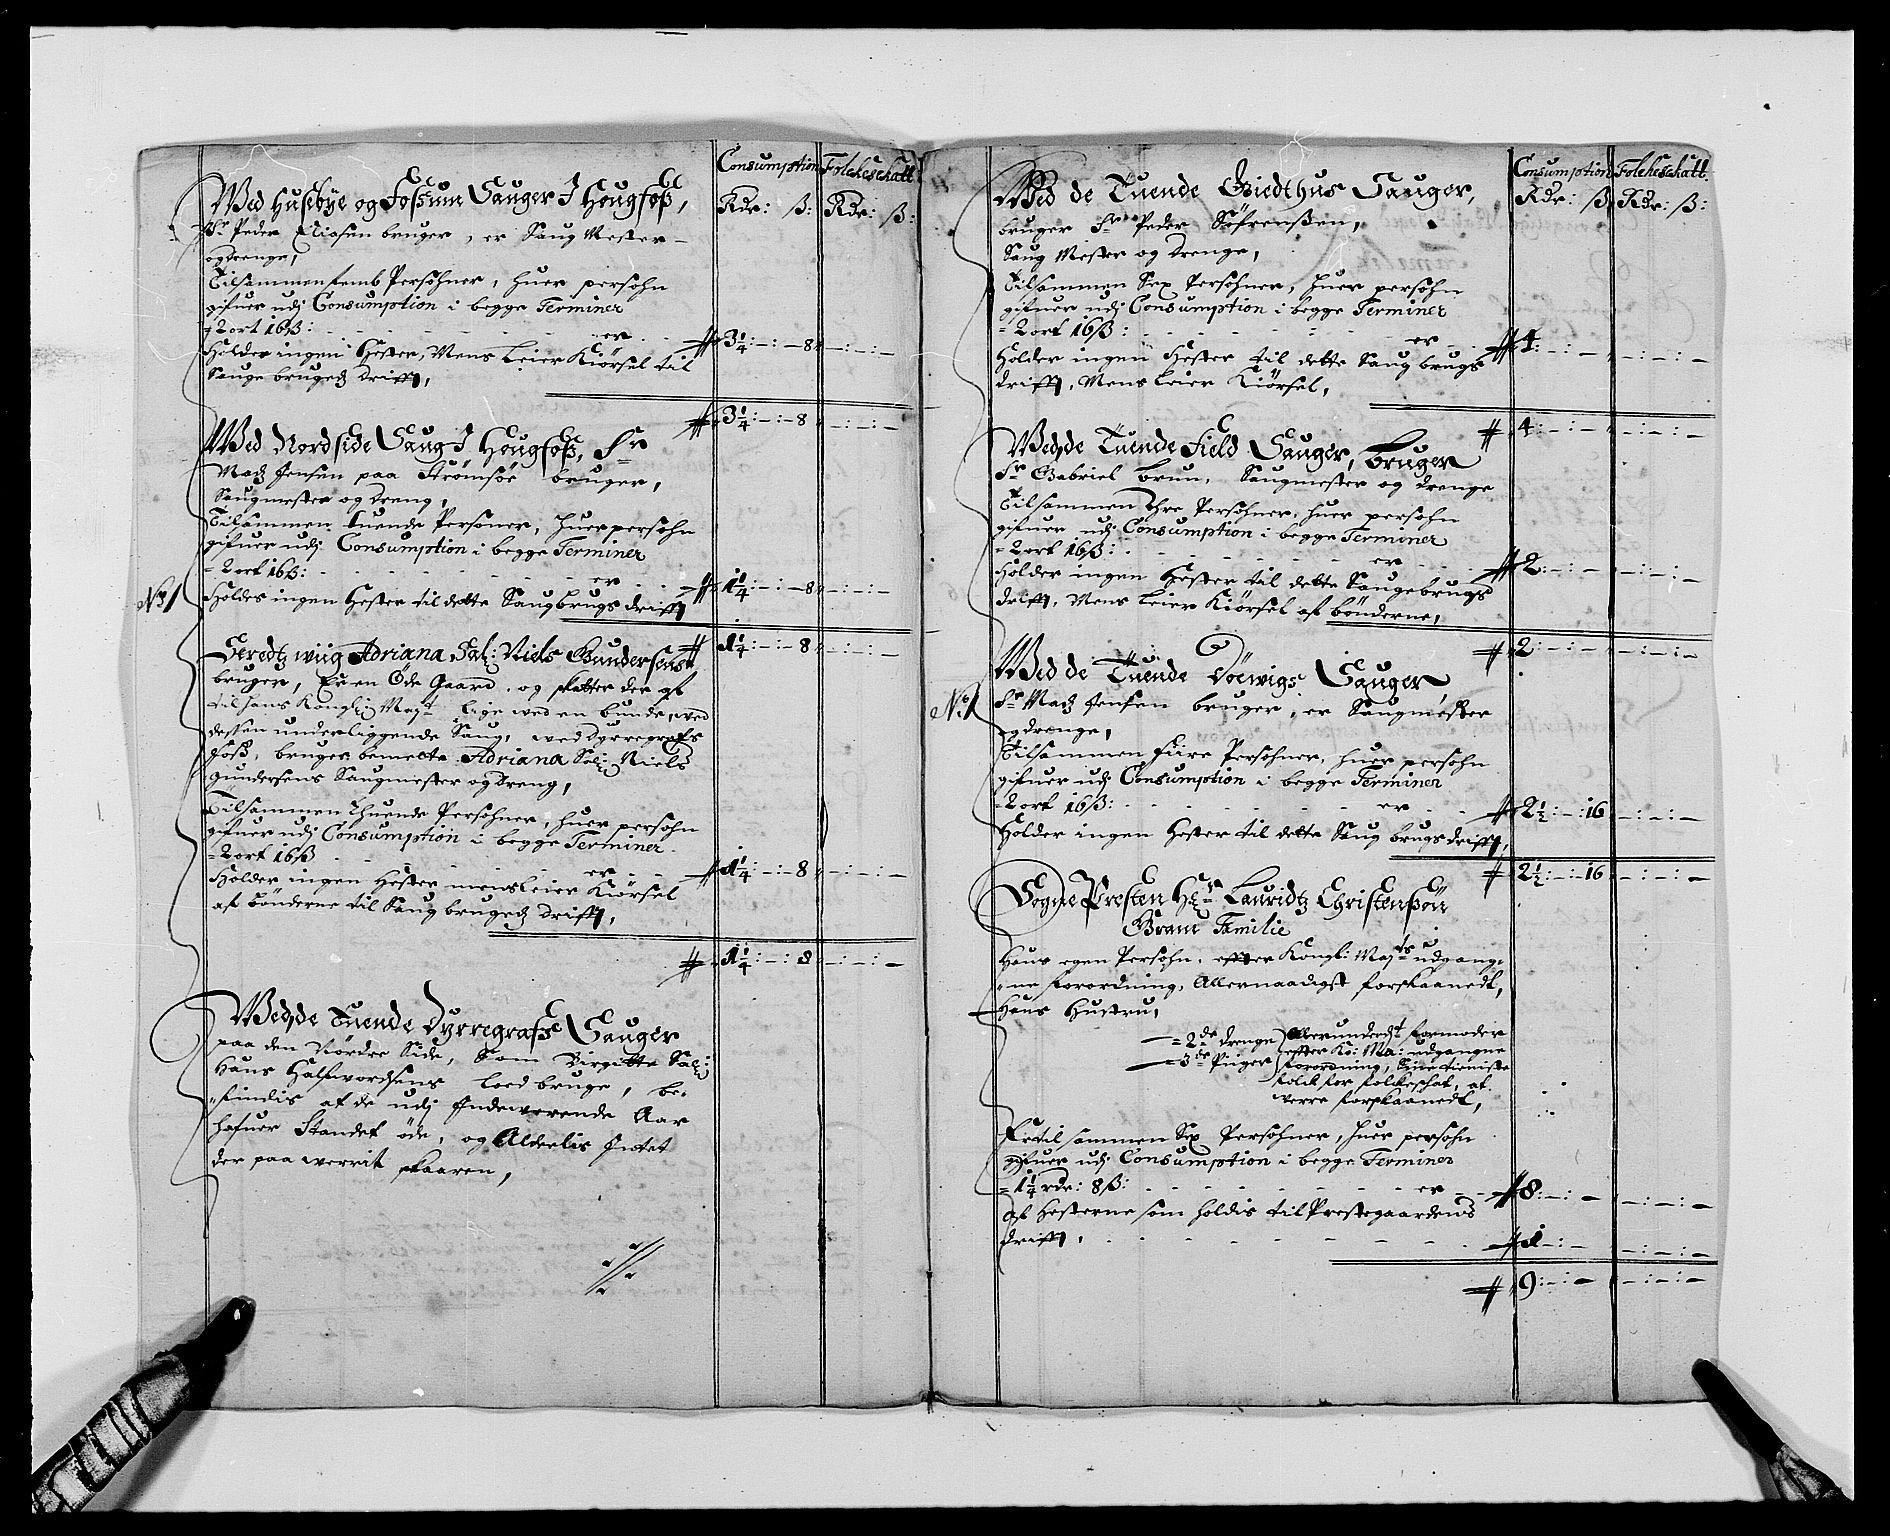 Consumption Folcheschatt
Rdr: ß: Rdr: ß:
Wed Husebÿe og Fossum Sauger I Hougfoß,
Sr Peder Eliasen bruger, er Saug Mester
og drenge,
Tilsammen femb Persohner, huer persohn
gifuer udj Consumption i begge Terminer
2 ort 16 ß: er 3¼:–:–8 –:–:–
Holder ingen Hester, Mens leier Kiörsel til
Sauge brugedz drifft,
3¼:–:–8 –:–:–
Wed Nordside Saug I Hougfoß, Sr
Madz Jensen paa Strömsöe bruger,
Saugmester og dreng,
Tilsammen tuende Personer, huer persohn
gifuer udj Consumption i begge Terminer
2 ort 16 ß: er 1¼:–:–8 –:–:–
No 1
Holdes ingen Hester til dette Saugbrugs drifft
1¼:–:–8 –:–:–
Geredtz wiig Adriana Sal: Niels Gundersens
bruger, Er en Öde Gaard, og skatter der af
til hans Kongl: Mayt lige wed en bunde, wed
dessen underliggende Saug, wed Dyrregrafs
Foss, bruger bemelte Adriana Sal: Niels
Gundersens Saugmester og Dreng,
Tilsammen Thuende Persohner, huer persohn
gifuer udj Consumption i begge Terminer
2 ort 16 ß er 1¼:–:–8 –:–:–
Holder ingen Hester mens leier Kiörsel
af bönderne til Saug brugedz drifft,
1¼:–:–8 –:–:–
Wed de Tuende Dÿrregrafs Sauger
paa den Nördre Side, Som Birgitte Sal:
Hans Halfwordsens lod bruge, be-
findis at de udj Indewerende Aar
hafuer Standet öde, og Alderlis Intet
der paa werrit skaaren,
Consumption Folcheschatt:
Rdr: ß Rdr: ß:
Wed de Tuende Giedthus Sauger,
bruger Sr Peder Söfrenßen,
Saug Mester og drenge,
Tilsammen Sex Persohner, huer persohn
gifuer udj Consumption i begge Terminer
2 ort 16 ß: er 4:–:– –:–:–
Holder ingen Hester til dette Saug brugs
drifft, Mens leier Kiörsel,
4:–:– –:–:–
Wed de Tuende Field Sauger, bruger
Sr Gabriel Brun, Saugmester og drenge
Tilsammen thre Persohner, huer persohn
gifuer udj Consumption i begge Terminer
2 ort 16 ß: er 2:–:– –:–:–
Holder ingen Hester til dette Saugebrugs
drifft, Mens leier Kiörsel af bönderne,
2:–:– –:–:–
Wed de Tuende Döewigs Sauger
No 1
Sr Madz Jensen bruger, er Saugmester
og drenge,
Tilsammen fiire Persohner, huer persohn
gifuer udj Consumption i begge Terminer
2 ort 16 ß: er 2½:–:16 –:–:–
Holder ingen Hester til dette Saug brugs drifft,
2½:–:16 –:–:–
Sogne Presten Hr Lauridtz Christenßön
Gram Familie
Hans egen Persohn, effter Kongl: Mayts udgang-
ne forordning, Allernaadigst forskaanedt,
Hans Hustru,
2de drenge Allerunderdt formoder
3de Piiger effter Ko: Ma: udgangne
forordning, Sine tieniste
folck for folkeskat, at
werre forskaanedt,
Er til sammen Sex Persohner, huer persohn
gifuer udj Consumption i begge Terminer
1¼ rdr: 8 ß: er 8:–:– –:–:–
af Hesterne som holdis til Prestegaardens
drifft, 1–:– –:–:–
9:–:– –:–:–